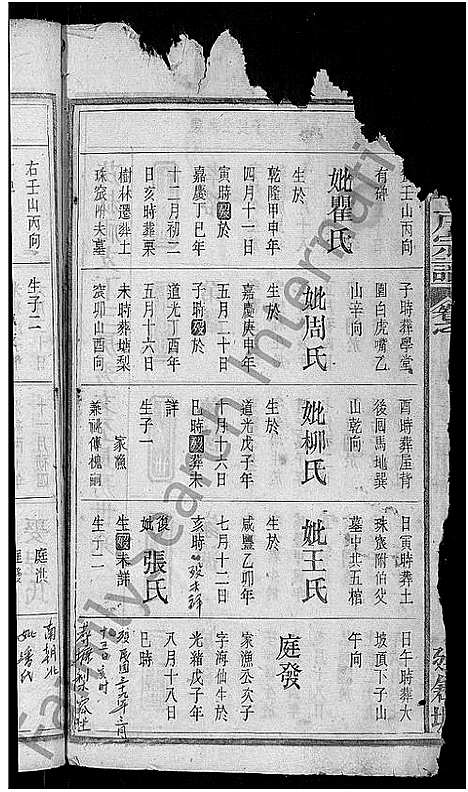 壬山丙向
有碑
妣瞿氏
生於
乾隆甲申年
四月十一日
寅時殁於
嘉慶丁巳年
十二月初二
日亥時葬栗
樹林遷葬土
珠窊附夫墓
右壬山丙向
子時葬學堂
園白虎嘴乙
山辛向
妣周氏
生於
嘉慶庚申年
五月二十日
子時殁於
道光丁酉年
五月十六日
未時葬塘梨
窊卯山酉向
生子二
酉時葬屋背
後囬馬地巽
山乾向
妣柳氏
生於
道光戊子年
十月十六日
巳時殁葬未
詳
生子一
家漁
兼祧傳槐嗣
日寅時葬土
珠窊附伯父
墓中共五棺
妣王氏
生於
咸豐乙卯年
七月十二日
亥時殁未詳
復妣張氏
生殁未詳
生子二
庭洪
庭發
日午時葬大
坡頂下子山
午向
庭發
家漁丞次子
字海仙生於
光緒戊子年
八月十八日
巳時
殁民國三十九年二月
十三日亥時
南朝北
宗譜
Family Search International